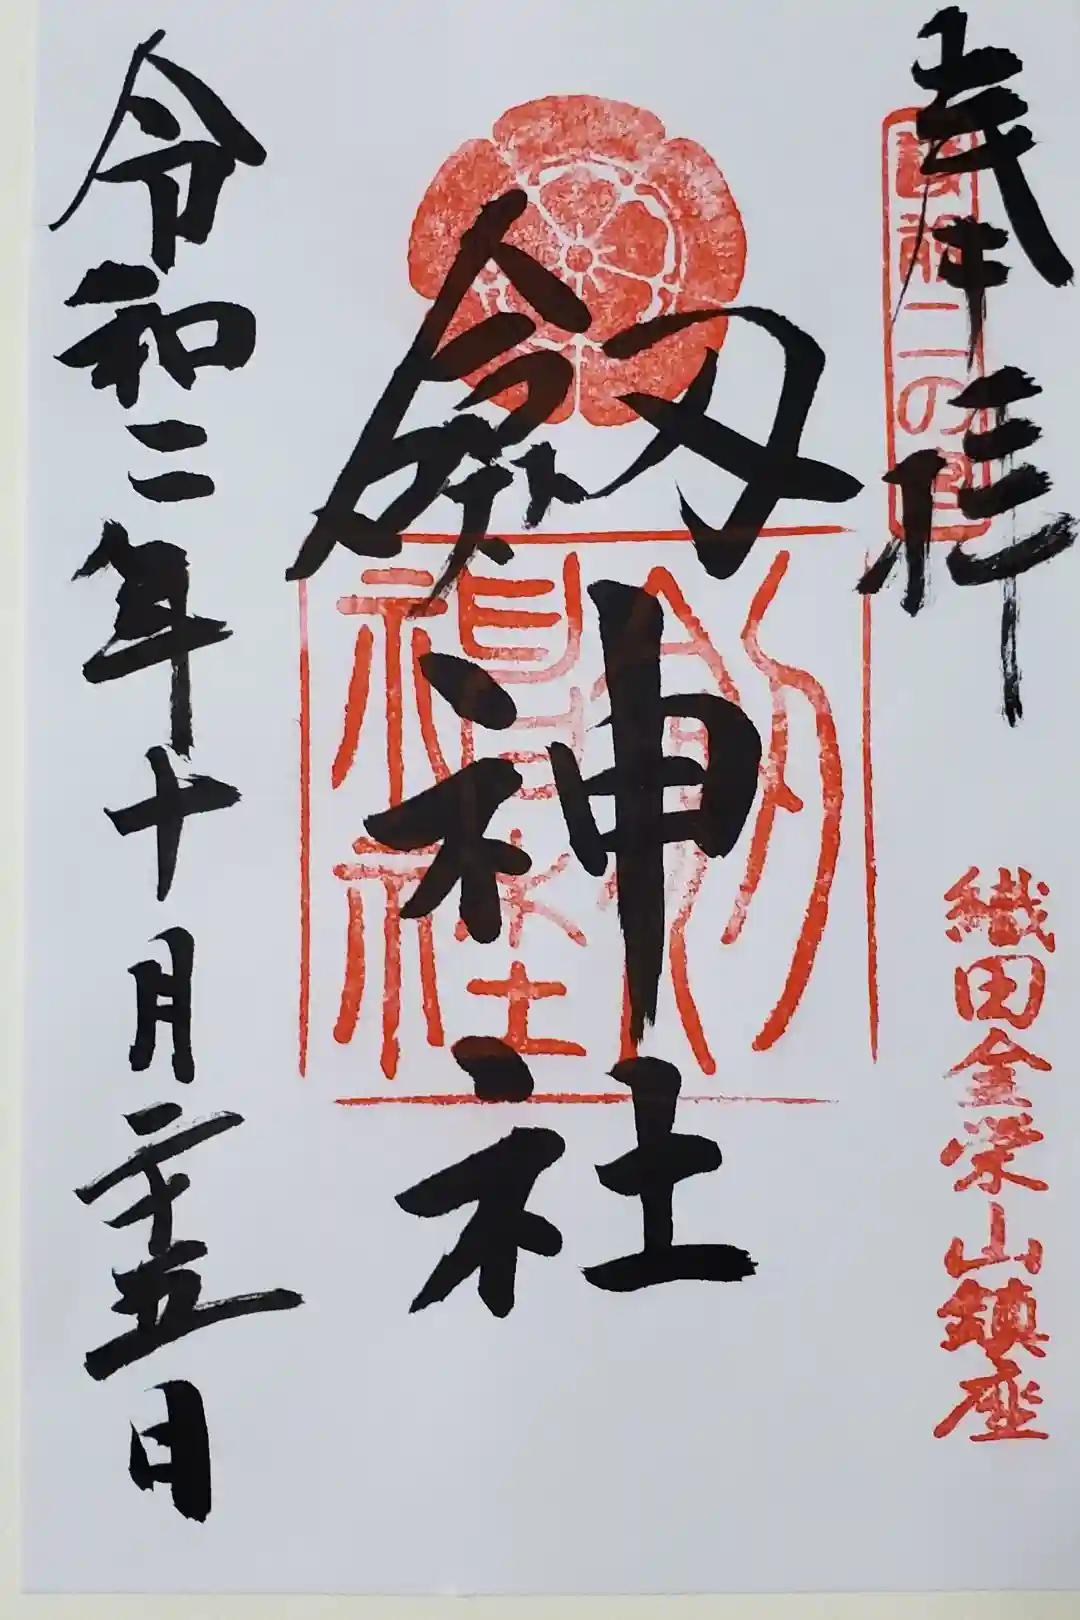 奉拝
越前二の宮
織田金栄山鎮座
劔神社
劔神社
令和二年十月二十五日